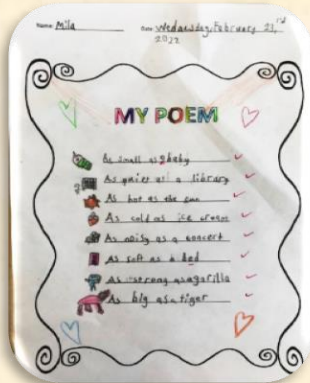 Name: Mila Date: Wednesday, February 23,rd
2022
MY POEM
As small as a baby
As quiet as a library
As hot as the sun
As cold as ice cream
As noisy as a concert
As soft as a bed
As strong as a gorilla
As big as a tiger